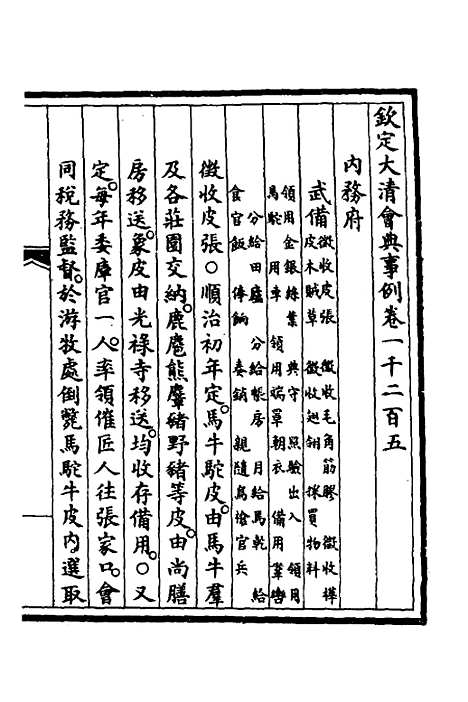 欽定大清會典事例卷一千二百五
內務府
武備
徵收皮張 徵收毛角筋膠 徵收樺
皮木賊草 徵收翅翎 採買物料
領用金銀絲葉 典守 照驗出入 領用
馬駝 用車 領用端罩朝衣 備用轡
分給田廬 分給帳房 月給馬乾 給
食官飯 俸餉 奏銷 親隨鳥槍官兵
徵收皮張○順治初年定。馬牛駝皮。由馬牛羣
及各莊園交納。鹿麅熊麞豬野豬等皮。由尚膳
房移送。象皮由光祿寺移送。均收存備用。○又
定。每年委庫官一人。率領催匠人往張家口。會
同稅務監督。於游牧處倒斃馬駝牛皮內選取